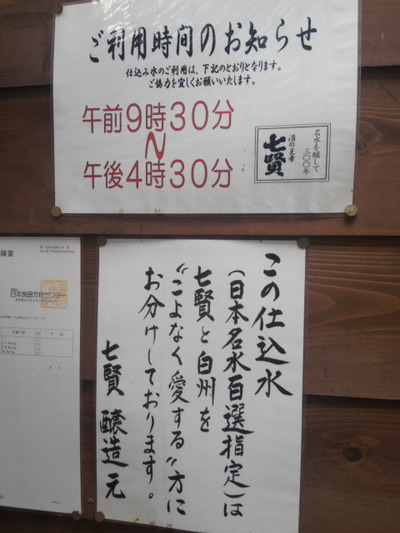 ご利用時間のお知らせ
仕込み水のご利用は、下記のとおりとなります。
ご協力を宜しくお願いいたします。
午前9時30分
～
午後4時30分
名水を醸して
三〇〇年
酒の王者
七賢
この仕込水
(日本名水百選指定)は
七賢と白州を
“こよなく愛する”方に
お分けしております。
七賢 醸造元